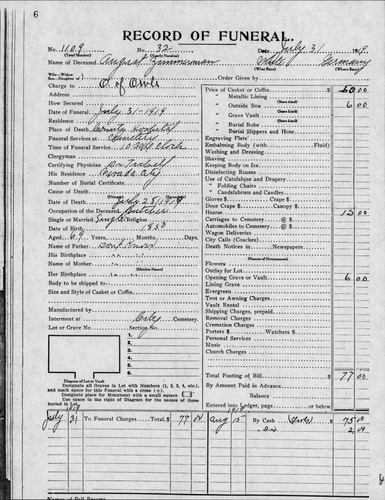 6
RECORD OF FUNERAL.
No. 1109 No. 32 Date July 31 1919.
(Total Number) (Yearly Number)
Name of Deceased August Zimmerman White Germany
(What Race) (Where Born)
Charge to O. of Owls Order Given by
Address
How Secured
Date of Funeral July 31-1919
Residence
Place of Death County Hospital
Funeral Services at Cemetery
Time of Funeral Service 10:30 o'clock
Clergyman
Certifying Physician
His Residence Nevada City
Number of Burial Certificate
Cause of Death
Date of Death July 28/1919
Occupation of the Deceased Butcher
Single or Married Single Religion
Date of Birth 1850
Aged 69 Years, Months, Days
Name of Father Don't Know
His Birthplace
Name of Mother
(Maiden Name)
Her Birthplace
Body to be shipped to
Size and Style of Casket or Coffin
Manufactured by
Interment at City Cemetery.
Lot or Grave No. Section No.
1
2
3
4
5
6
Diagram of Lot or Vault
Designate all Graves in Lot with Numbers (1, 2, 3, 4, etc.)
and mark space for this Funeral with a cross (+).
Designate place for Monument with a small square
Use space to the right of Diagram for the names of those
buried in Lot.
Price of Casket or Coffin $ 60 00
" Metallic Lining
" Outside Box (State kind) 6 00
" Grave Vault (State kind)
" Burial Robe (State kind)
" Burial Slippers and Hose
Engraving Plate
Embalming Body (with Fluid)
Washing and Dressing
Shaving
Keeping Body on Ice
Disinfecting Rooms
Use of Catafalque and Drapery
" Folding Chairs
" Candelabrum and Candles
Gloves $ Crape $
Door Crape $ Canopy $
Hearse 15 00
Carriages to Cemetery @ $
Automobiles to Cemetery @ $
Wagon Deliveries
City Calls (Coaches)
Death Notices in Newspapers
Flowers
Outlay for Lot
Opening Grave or Vault 6 00
Lining Grave
Evergreen
Tent or Awning Charges
Vault Rental
Shipping Charges, prepaid
Removal Charges
Cremation Charges
Porters $ Watchers $
Personal Services
Music
Church Charges
Total Footing of Bill $ 77 00
By Amount Paid in Advance
Balance
Entered into Ledger, page or below
1919
July 31 To Funeral Charges Total, $ 77 00
1919
Aug 15 By Cash (Owls) $ 75 00
" Dis 2 00